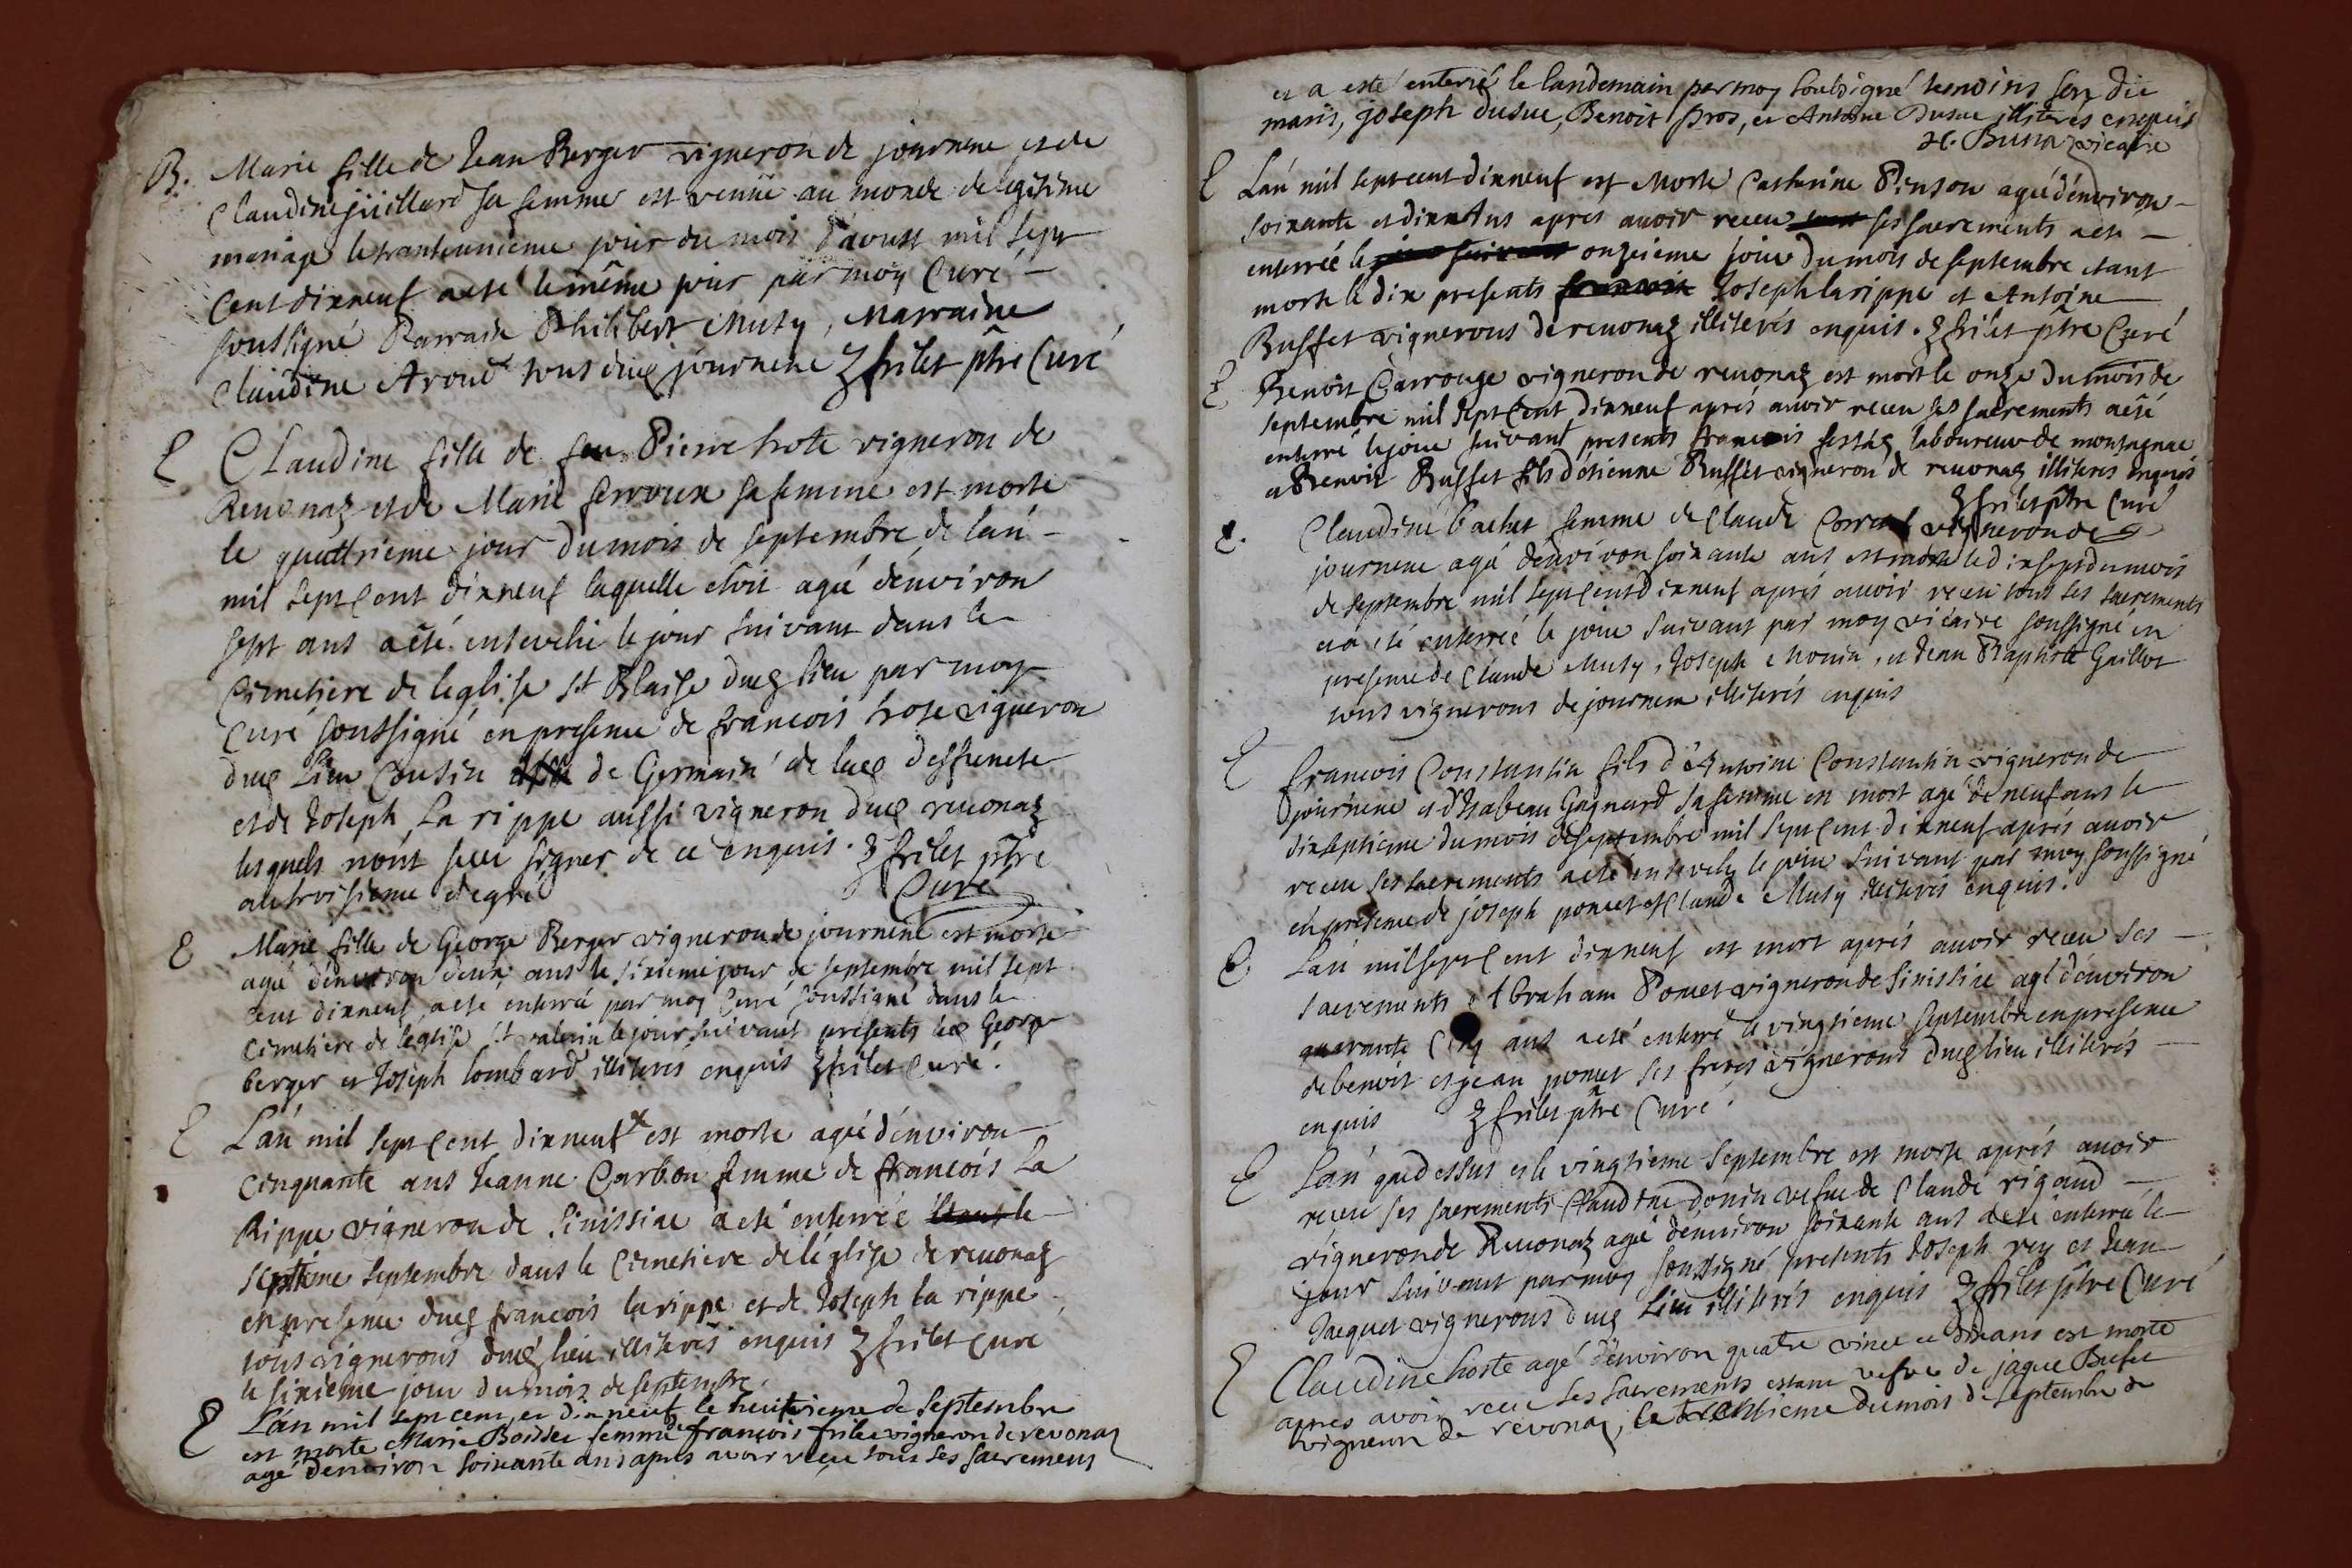 B. Marie fille de Jean Berger vigneron de journene et de
Claudine jüillard sa femme est venüe au monde de legitime
mariage le tranteunieme jour du mois d'avoust mil sept
Cent dixneuf a été le même jour par moy Curé –
soussigné Parrain Philibert Muty, Marraine
Claudine Aroud tous dud journene frilet ptre Curé
E Claudine fille de feu Pierre hote vigneron de
Revonaz et de Marie ferroux sa femme est morte
le quattrieme jour du mois de septembre de lan –
mil sept Cent dixneuf laquelle étoit agée d'environ
sept ans a été ensevelie le jour suivant dans le
Cimetiere de leglise st Blaise dud lieu par moy
Curé soussigné en presence de francois hote vigneron
dud Lieu Cousin de Germain de lad deffuncte
et de Joseph La rippe aussi vigneron dud revonaz
lesquels n'ont sceu signer de ce enquis. frilet ptre
au troisieme degré Curé
E Marie fille de George Berger vigneron de journene est morte
agée d'environ deux ans le sixieme jour de septembre mil sept
cent dixneuf a été enterrée par moy Curé soussigné dans le
Cimetiere de leglise st valerin le jour suivant presents led George
berger et Joseph lombard illiterés enquis frilet Curé.
E Lan mil sept Cent dixneuf x est morte agée d'environ
Cinquante ans Jeanne Carbon femme de francois La
Rippe vigneron de Sinissiae a été enterrée le
septieme septembre dans le Cimetiere de léglise de revonaz
en presence dud francois larippe et de Joseph la rippe
tous vignerons dud lieu illiterés enquis frilet Curé
le sixieme jour du mois de septembre.
E Lan mil sept cent et dix neuf le huitieme de septembre
est morte Marie Boisset femme de françois frilet vigneron de revonaz
agé denviron soixante ans apres avoir reçu tous ses sacremens
et a esté enterré le landemain par moy soubsigné temoins son dit
maris, joseph dusue, Benoit pros, et Antoine Dusue illiterés enquis
vicaire
E Lan mil sept cent dixneuf est Morte Catherine Pinson agée d'environ –
soixante et dix Ans apres avoir receu ses sacrements a eté –
enterrée le onzieme jour du mois de septembre etant
morte le dix presents Joseph larippe et Antoine
Buffet vignerons de revonaz illiterés enquis. frilet ptre Curé
E Benoit Carrouge vigneron de revonaz est mort le onze du mois de
septembre mil sept Cent dixneuf aprés avoir receu ses sacrements a été
enterré le jour suivant presents francois laboureur de montagnac
et Benoit Buffet fils d'étienne Buffet vigneron de revonaz illiterés enquis
frilet ptre Curé
E. Claudine bachet femme de Claude vigneron de
journene agée d'environ soixante ans est morte le dix sept du mois
de septembre mil sept cent dixneuf aprés avoir receu tous ses sacrements
et a été enterrée le jour suivant par moy vicaire soussigné en
presence de Claude Muty, Joseph Monin, et Jean Baptiste Gaillot
tous vignerons de journene illiterés enquis
E francois Constantin fils d'Antoine Constantin vigneron de
journene et d'Isabeau Gagneard sa femme est mort agé de neuf ans le
dixseptieme du mois de septembre mil sept Cent dixneuf aprés avoir
receu ses sacrements a eté ensevely le jour suivant par moy soussigné
en presence de joseph poncet et Claude Muty illiterés enquis.
E Lan mil sept Cent dixneuf est mort aprés avoir receu ses –
sacrements Abraham Poncet vigneron de Sinissiae agé d'environ
quarante Cinq ans a eté enterré le vingtieme septembre en presence
de benoit et jean poncet ses freres vignerons dud lieu illiterés –
enquis frilet ptre Curé.
E Lan que dessus et le vingtieme septembre est morte aprés avoir
receu ses sacrements Claudine donin vefue de Claude rigaud –
vigneron de Revonaz agée denviron soixante ans a eté enterrée le
jour suivant par moy soussigné presents Joseph rey et Jean
Jacquet vignerons dud Lieu illiterés enquis frilet ptre Curé
E Claudine hoste agé d'environ quatre vinct et dix ans est morte
apres avoir receu ses sacrements estant vefve de jaque Bufet
vigneron de revonaz, le trentieme du mois de septembre de